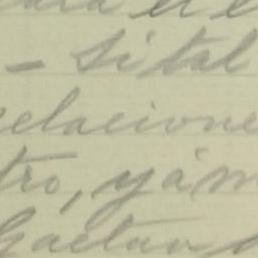 - Si tal
elacione
tro, y á m
Gaetan